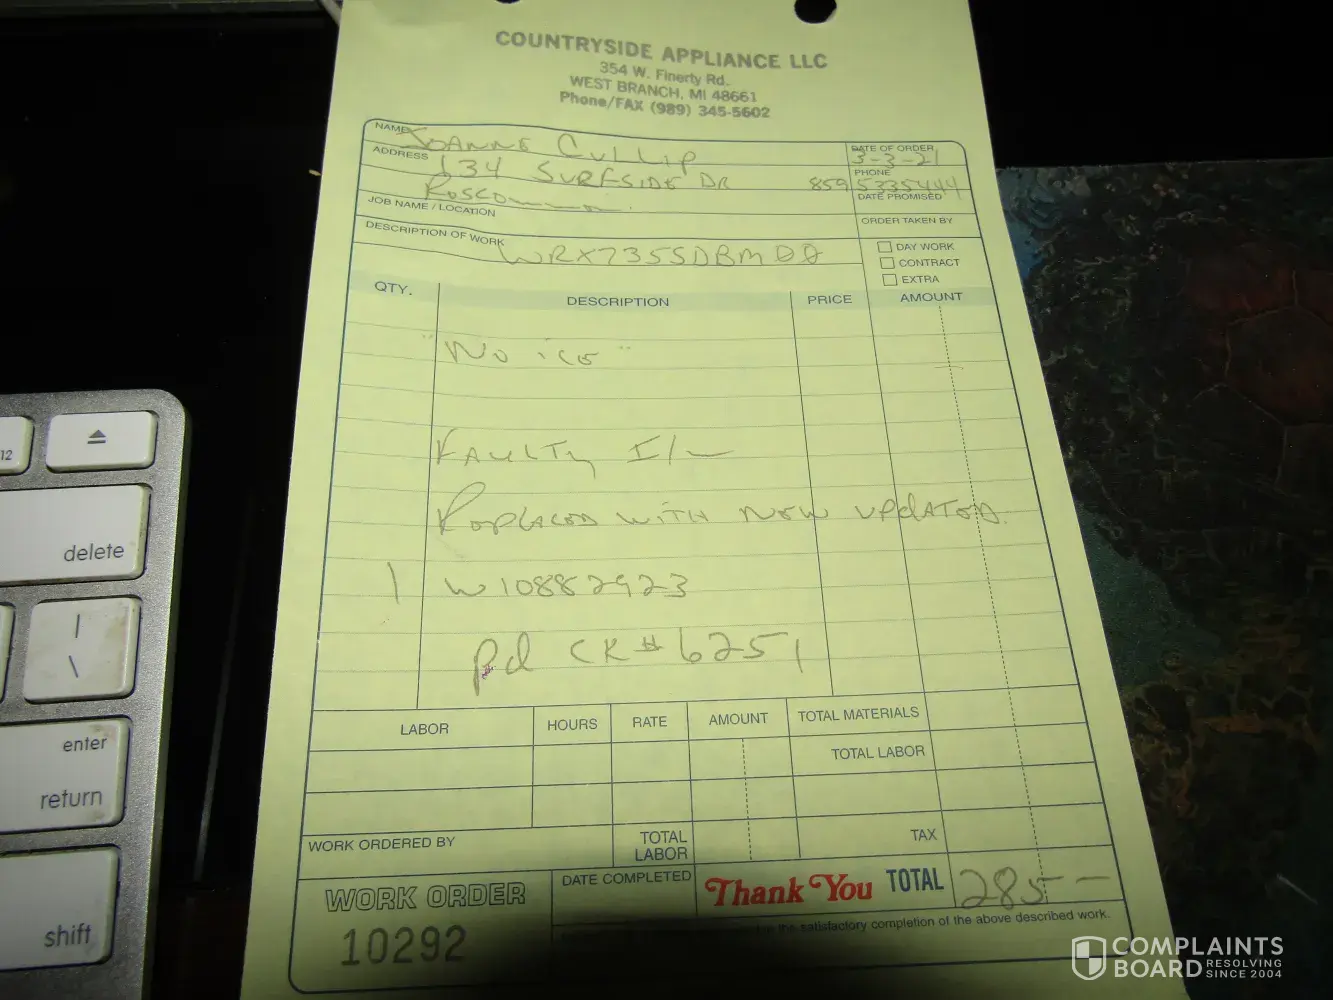 COUNTRYSIDE APPLIANCE LLC
354 W. Finerty Rd.
WEST BRANCH, MI 48661
Phone/FAX (989) 345-5602
NAME JOANNE CULLIP
DATE OF ORDER 3-3-21
ADDRESS 134 SURFSIDE DR
PHONE 859 5335444
Roscommon
DATE PROMISED
JOB NAME / LOCATION
ORDER TAKEN BY
DESCRIPTION OF WORK WRX735SDBM00
DAY WORK
CONTRACT
EXTRA
QTY. DESCRIPTION PRICE AMOUNT
"No ice"
FAULTY I/M
REPLACED WITH NEW UPDATED.
1 W10882923
Pd CK # 6251
LABOR HOURS RATE AMOUNT TOTAL MATERIALS
TOTAL LABOR
WORK ORDERED BY TOTAL LABOR TAX
WORK ORDER DATE COMPLETED Thank You TOTAL 285 —
10292
the satisfactory completion of the above described work.
12
delete
|
\
enter
return
shift
COMPLAINTS
BOARD RESOLVING SINCE 2004